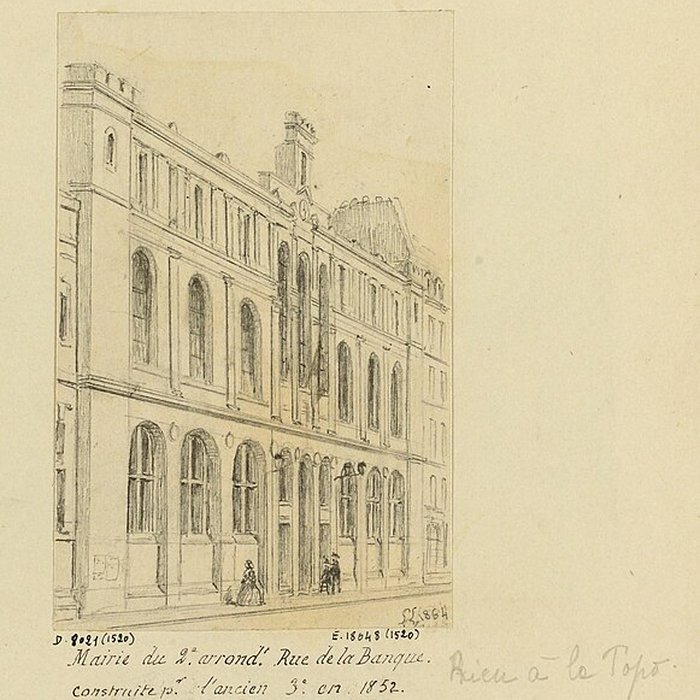 1864
D. 8021 (1520)
E. 18048 (1520)
Mairie du 2e arrondt. Rue de la Banque.
Construite pr. l'ancien 3e en 1852.
Rien à la Topo.